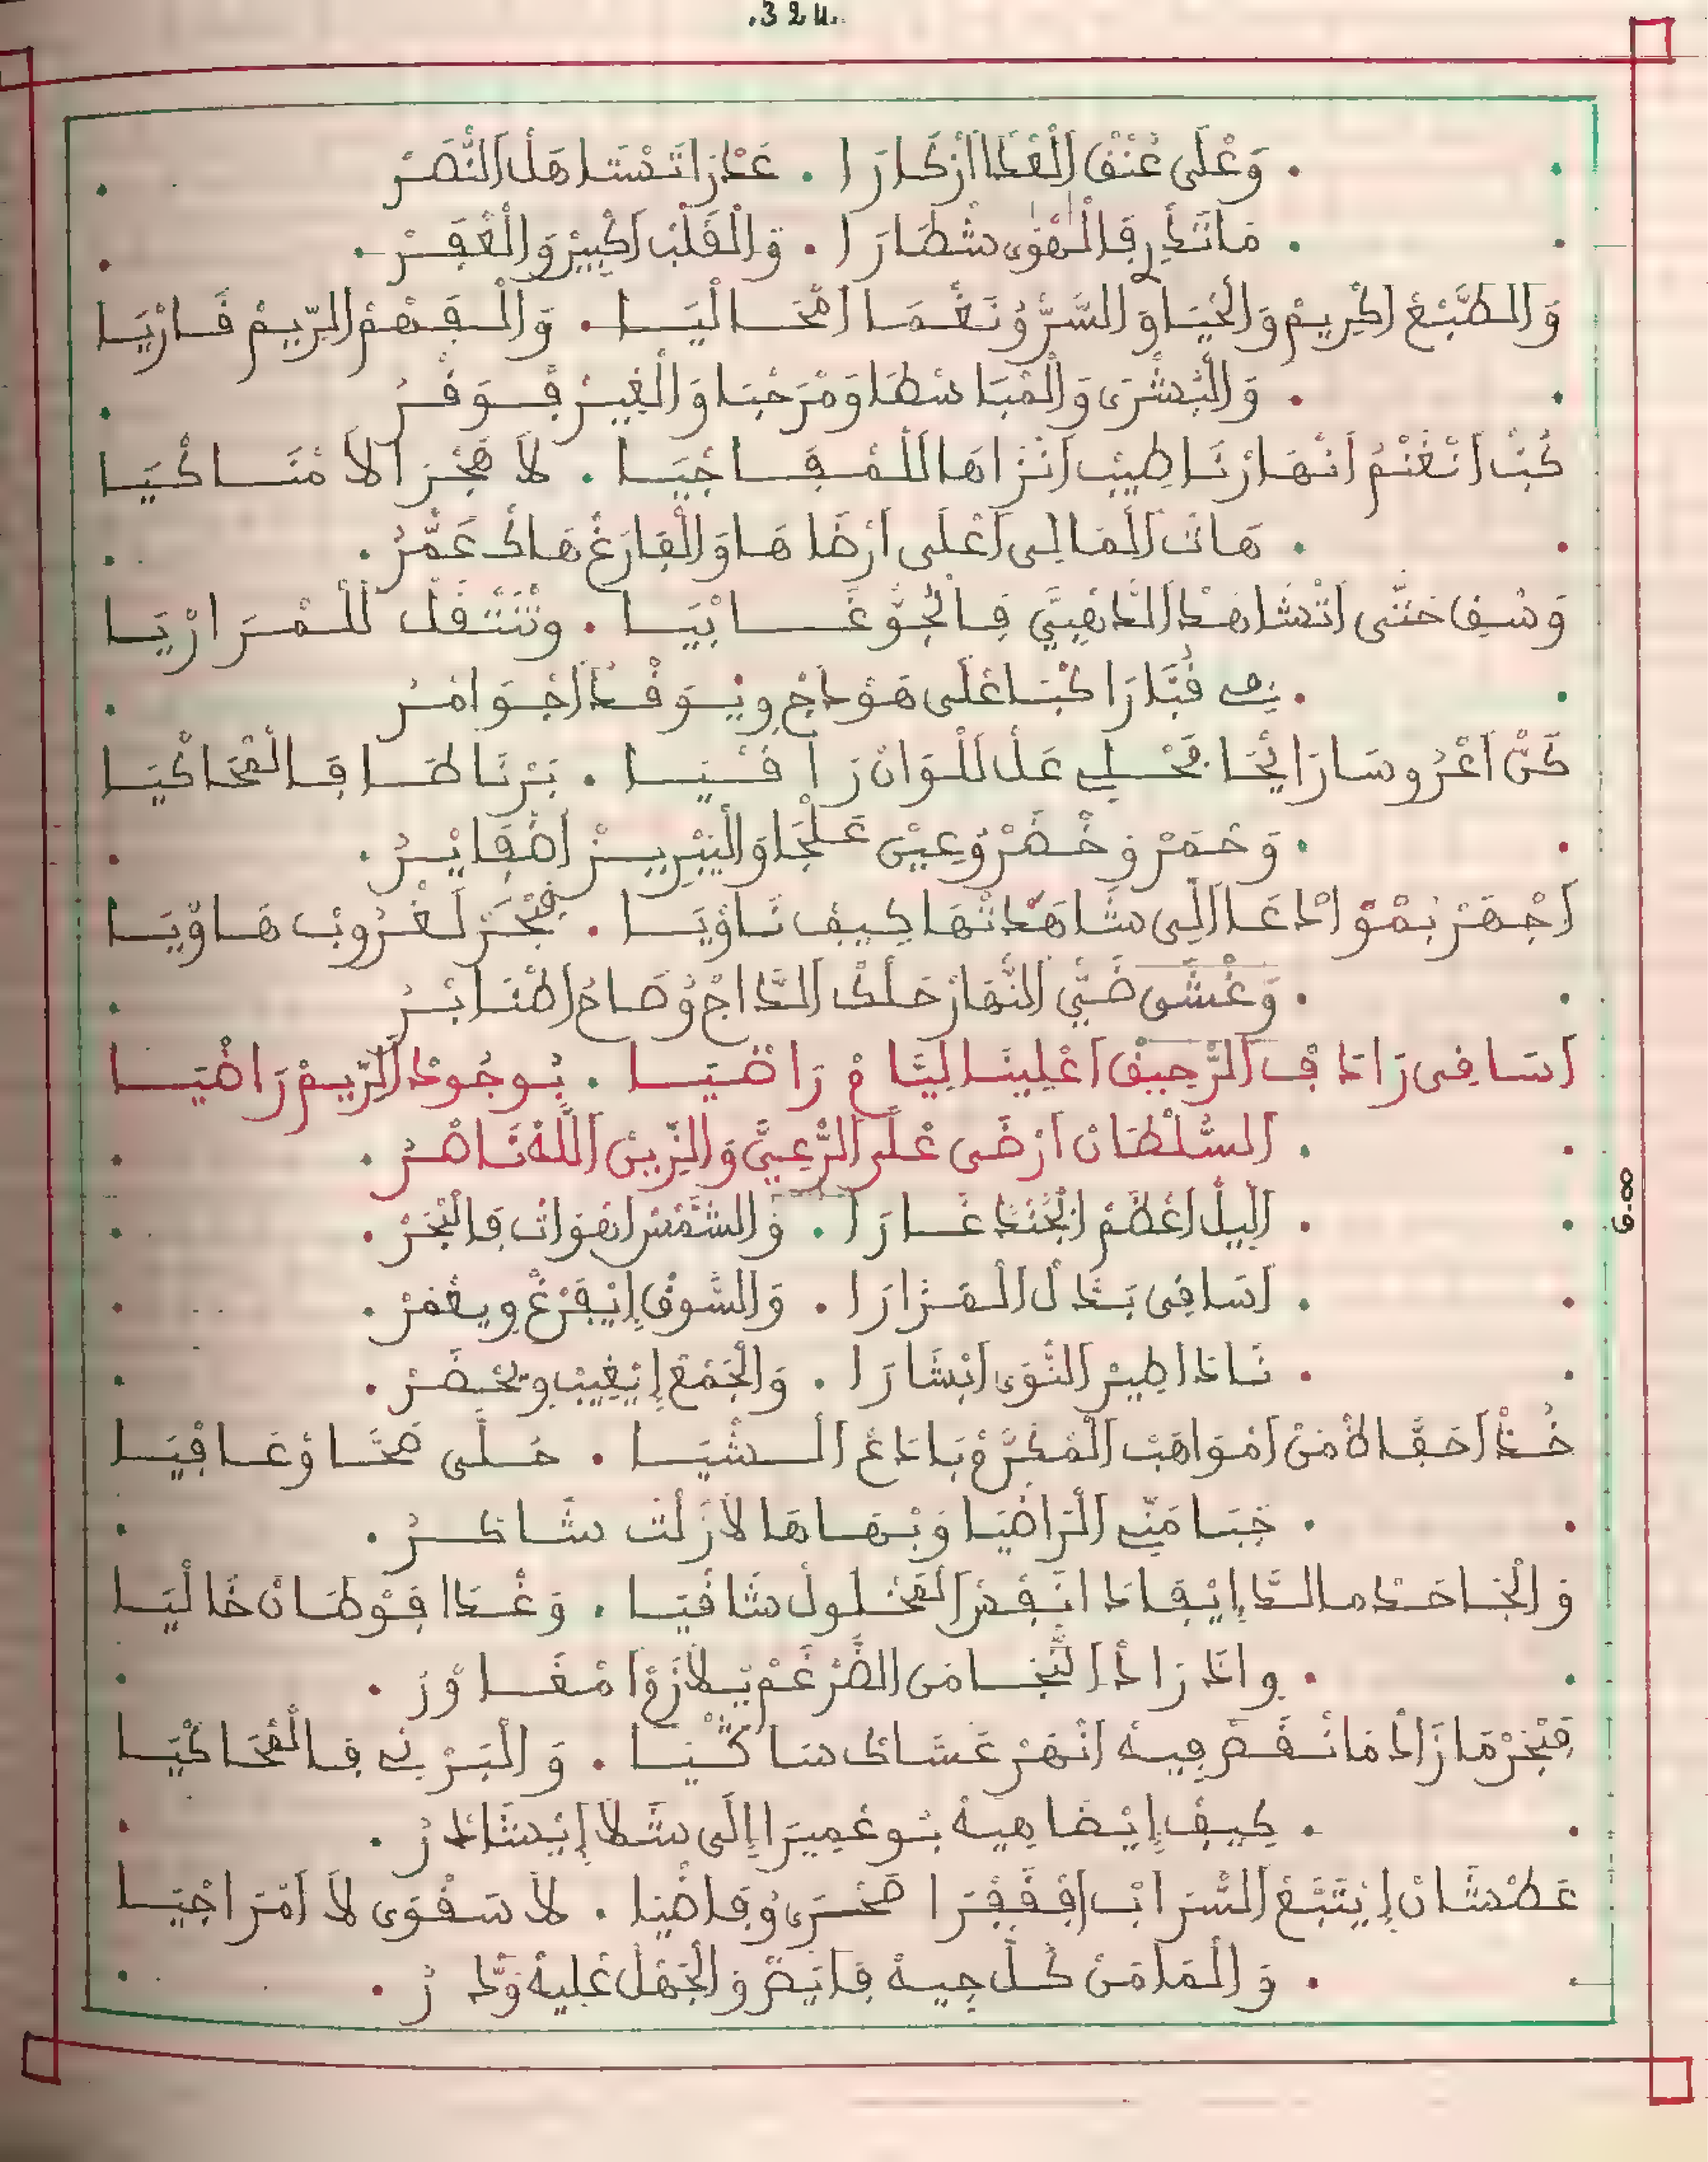 .324.
وَعْلَى عُنْقْ الْعْدَا أزْكَارَا . عَدْرَا تَسْتَاهَلْ النَّصَرْ
مَا تَدْرِ فَالْهْوَى شْطَارَا . وَالْقَلْبْ اكْبِيرْ وَالْغْفَرْ
وَالطَّبْعْ اكْرِيمْ وَالْحْيَا وَالسَّرُّ وُنَغْمَا امْحَالْيَا . وَالْفَهْمْ الرِّيمْ قَارْيَا
وَالْبْشْرَى وَالْمْبَاسْطَا وَمْرَحْبَا وَالْغِيرْ فْوَفْرُ
كُبْ انْغْنْمُ انْهَارْنَا طِيبْ انْزَاهَا لَلْمْفَاجْيَا . لاَ هَجْرَا لاَ مْنَاكْيَا
هَاتْ الْمَالِى اعْلَى ارْضَاهَا وَالْفَارَغْ هَاكْ عَمَّرُ
وَسْقِ حَتَّى اتْشَاهْدْ الدَّهْبِيَّ فِالْجُوّ غَابْيَا . وتْنَتْقَلْ للمْرَارْيَا
فِى قُبَّا رَاكْبَا عْلَى هَوْدَاجْ ويْوَقْدْ اجْوَامْرُ
كَنّْ اعْرُوسَا رَايْحَا تَحْلِى عَلْ لَلْوَانْ رَاقْيَا . بَرْنَاطَا فَالْمْحَاكْيَا
وَحْمَرْ وْخْضَرْ وُعِينْ عَلْجَا وَالْبْرِيزْ اضْفَايْرُ
اجْهَرْ بَمْوَادْعَا الِّى شَاهَدْتْهَا كِيفْ نَاوْيَا . فَبْحَرْ لَغْرُوبْ هَاوْيَا
وَغْشَى ضَيّْ النّْهَارْ حَلْكْ الدَّاجْ وُصَاحْ اطْنَابْرُ
اسَاقِى زَادْ فْ الرّْحِيقْ اعْلِينَا لِيَّامْ رَاضْيَا . بُوجُودْ الرِّيمْ رَاضْيَا
السُّلْطَانْ ارْضَى عْلَى الرّْعِيَّ وَالزِّينْ اللَّهْ نَاصْرُ
اللِّيلْ اعْظَمْ الْجُنْدْ غَارَا . وَالشَّمْسْ اهْوَاتْ فَالْبْحَرْ
اسَاقِى بَدَّلْ الْمْزَارَا . وَالشُّوقْ إيْفَرْغْ وِيعْمَرْ
نَادَا طِيرْ النَّوَى ابْشَارَا . وَالْجَمْعْ إيْغِيبْ ويحْضَرْ
خُدْ احَقَّا لاَمَنْ امْوَاهَبْ الْمْكَرَّمْ بَادَعْ الَشْيَا . حُلَّى صَحَّا وْعَافْيَا
حَبَا مَنِّى الْرَاضْيَا وَبْهَاهَا لاَزَلْتْ شَاكَرُ
وَالْجَاحَدْ مالدَّ إيْفَادْ انْفْدْ الَفْحْلُولْ شَافْيَا . وَغْدَا فَوْطَانْ خَالْيَا
وادَ زَادْ النَّجَا مَنْ الضَّرْغَمْ يَلاَزَمْ امْغَاوَرْ
فَبْحَرْ مَا زَادْ مَا نْقَصْ فِيهْ انْهَرْ عَسَّاكْ سَاكْيَا . وَالْبَرْنِى فَالْمْحَاكْيَا
كِيفْ إيْضَاهِيهْ بُوعْمِيرَا إلَى شَلاَّ إيْشَادَرْ
عَطْشَانْ إيْتَبَّعْ السّْرَابْ اقْفَفْرَا صَحْرَى وُفَاضْيَا . لاَ سَقْوَى لاَ امْرَاجْيَا
وَالْمَا مَنْ كُلّْ جِيهْ فَايَضْ وَالْجَهْلْ عْلِيهْ وَدَّرْ